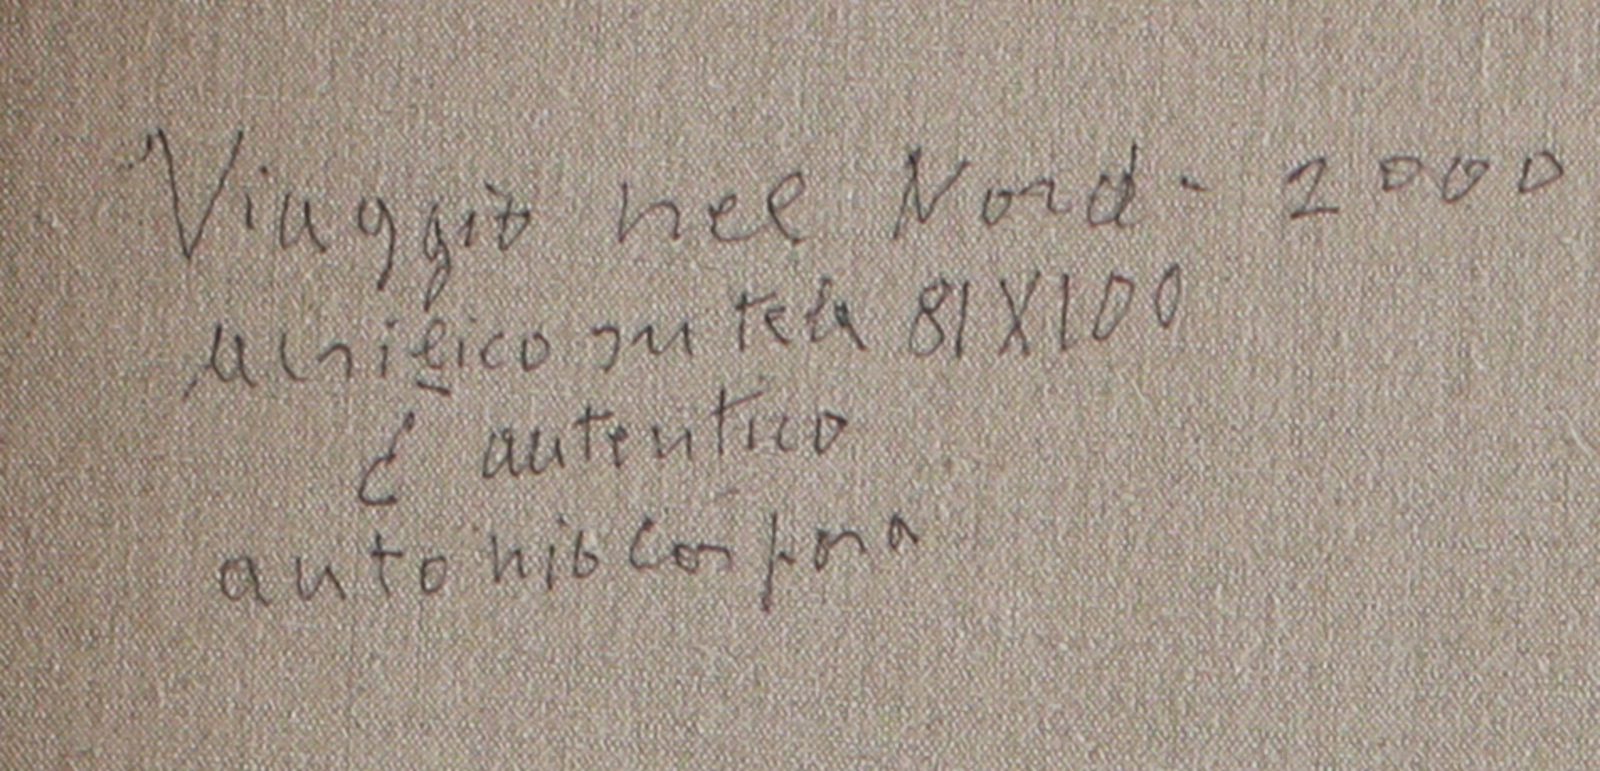 Viaggio nel Nord - 2000
acrilico su tela 81X100
È autentico
antonio Corpora